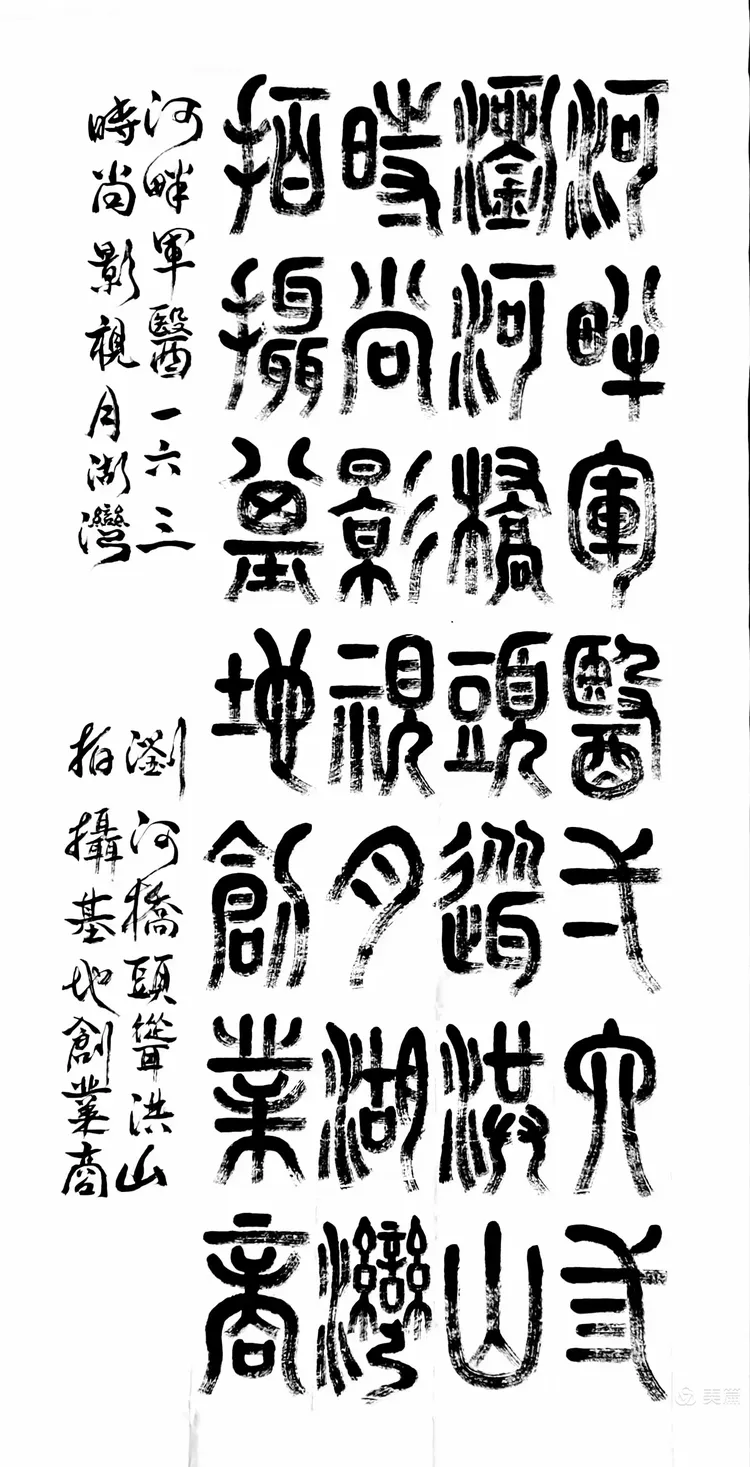 河畔軍醫弌六弎
瀏河橋頭聳洪山
時尚影視月湖灣
拍攝基地創業商
河畔軍醫一六三 瀏河橋頭聳洪山
時尚影視月湖灣 拍攝基地創業商
美篇